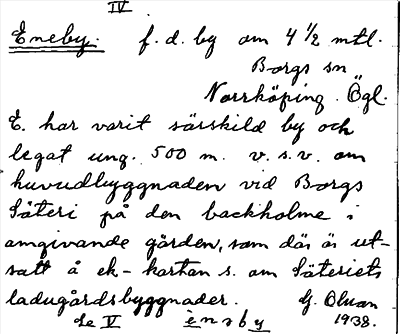 IV
Eneby. f. d. by om 4 1/2 mtl.
Borgs sn
Norrköping. Ögl.
E. har varit särskild by och
legat ung. 500 m. v. s. v. om
huvudbyggnaden vid Borgs
Säteri på den backholme i
omgivande gården, som där är ut-
satt å ek-kartan s. om Säteriets
ladugårdsbyggnader. G. Olson
de V ènsby 1938.